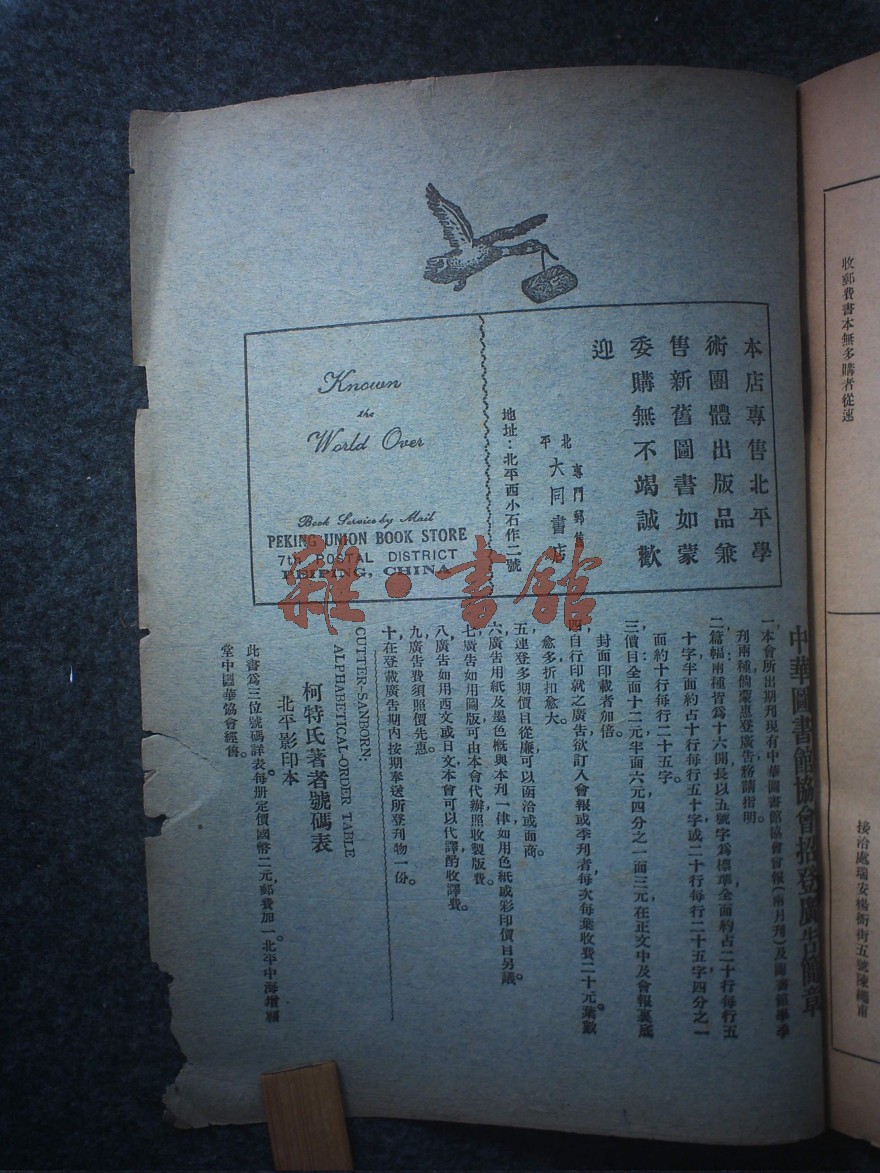 本店專售北平學
術團體出版品兼
售新舊圖書如蒙
委購無不竭誠歡
迎
專門郵售
北平
大同書店
地址：北平西小石作二號
Known
the
World Over
Book Service by Mail
PEKING UNION BOOK STORE
7th POSTAL DISTRICT
PEIPING, CHINA
雜·書館
中華圖書館協會招登廣告簡章
一，本會所出期刊現有中華圖書館協會會報（兩月刊）及圖書館學季
刊兩種倘蒙惠登廣告務請指明。
二，篇幅兩種皆爲十六開長以五號字爲標準全面約占二十行每行五
十字半面約占十行每行五十字或二十行每行二十五字，四分之一
面約十行每行二十五字。
三，價目全面十二元半面六元四分之一面三元，在正文中及會報裏底
封面印載者加倍。
四，自行印就之廣告欲訂入會報或季刊者每次每葉收費二十元，葉數
愈多折扣愈大。
五，連登多期價目從廉可以函洽或面商。
六，廣告用紙及墨色槪與本刊一律如用色紙或彩印價目另議。
七，廣告如用圖版可由本會代辦，照收製版費。
八，廣告如用西文或日文本會可以代譯，酌收譯費。
九，廣告費須照價先惠。
十，在登載廣告期內按期奉送所登刊物一份。
CUTTER-SANBORN:
ALPHABETICAL-ORDER TABLE
柯特氏著者號碼表
北平影印本
此書爲三位號碼詳表，每册定價國幣二元，郵費加一。北平中海增福
堂中國華協會經售。
收郵費書本無多購者從速
接洽處瑞安楊衙街五號陳繩甫